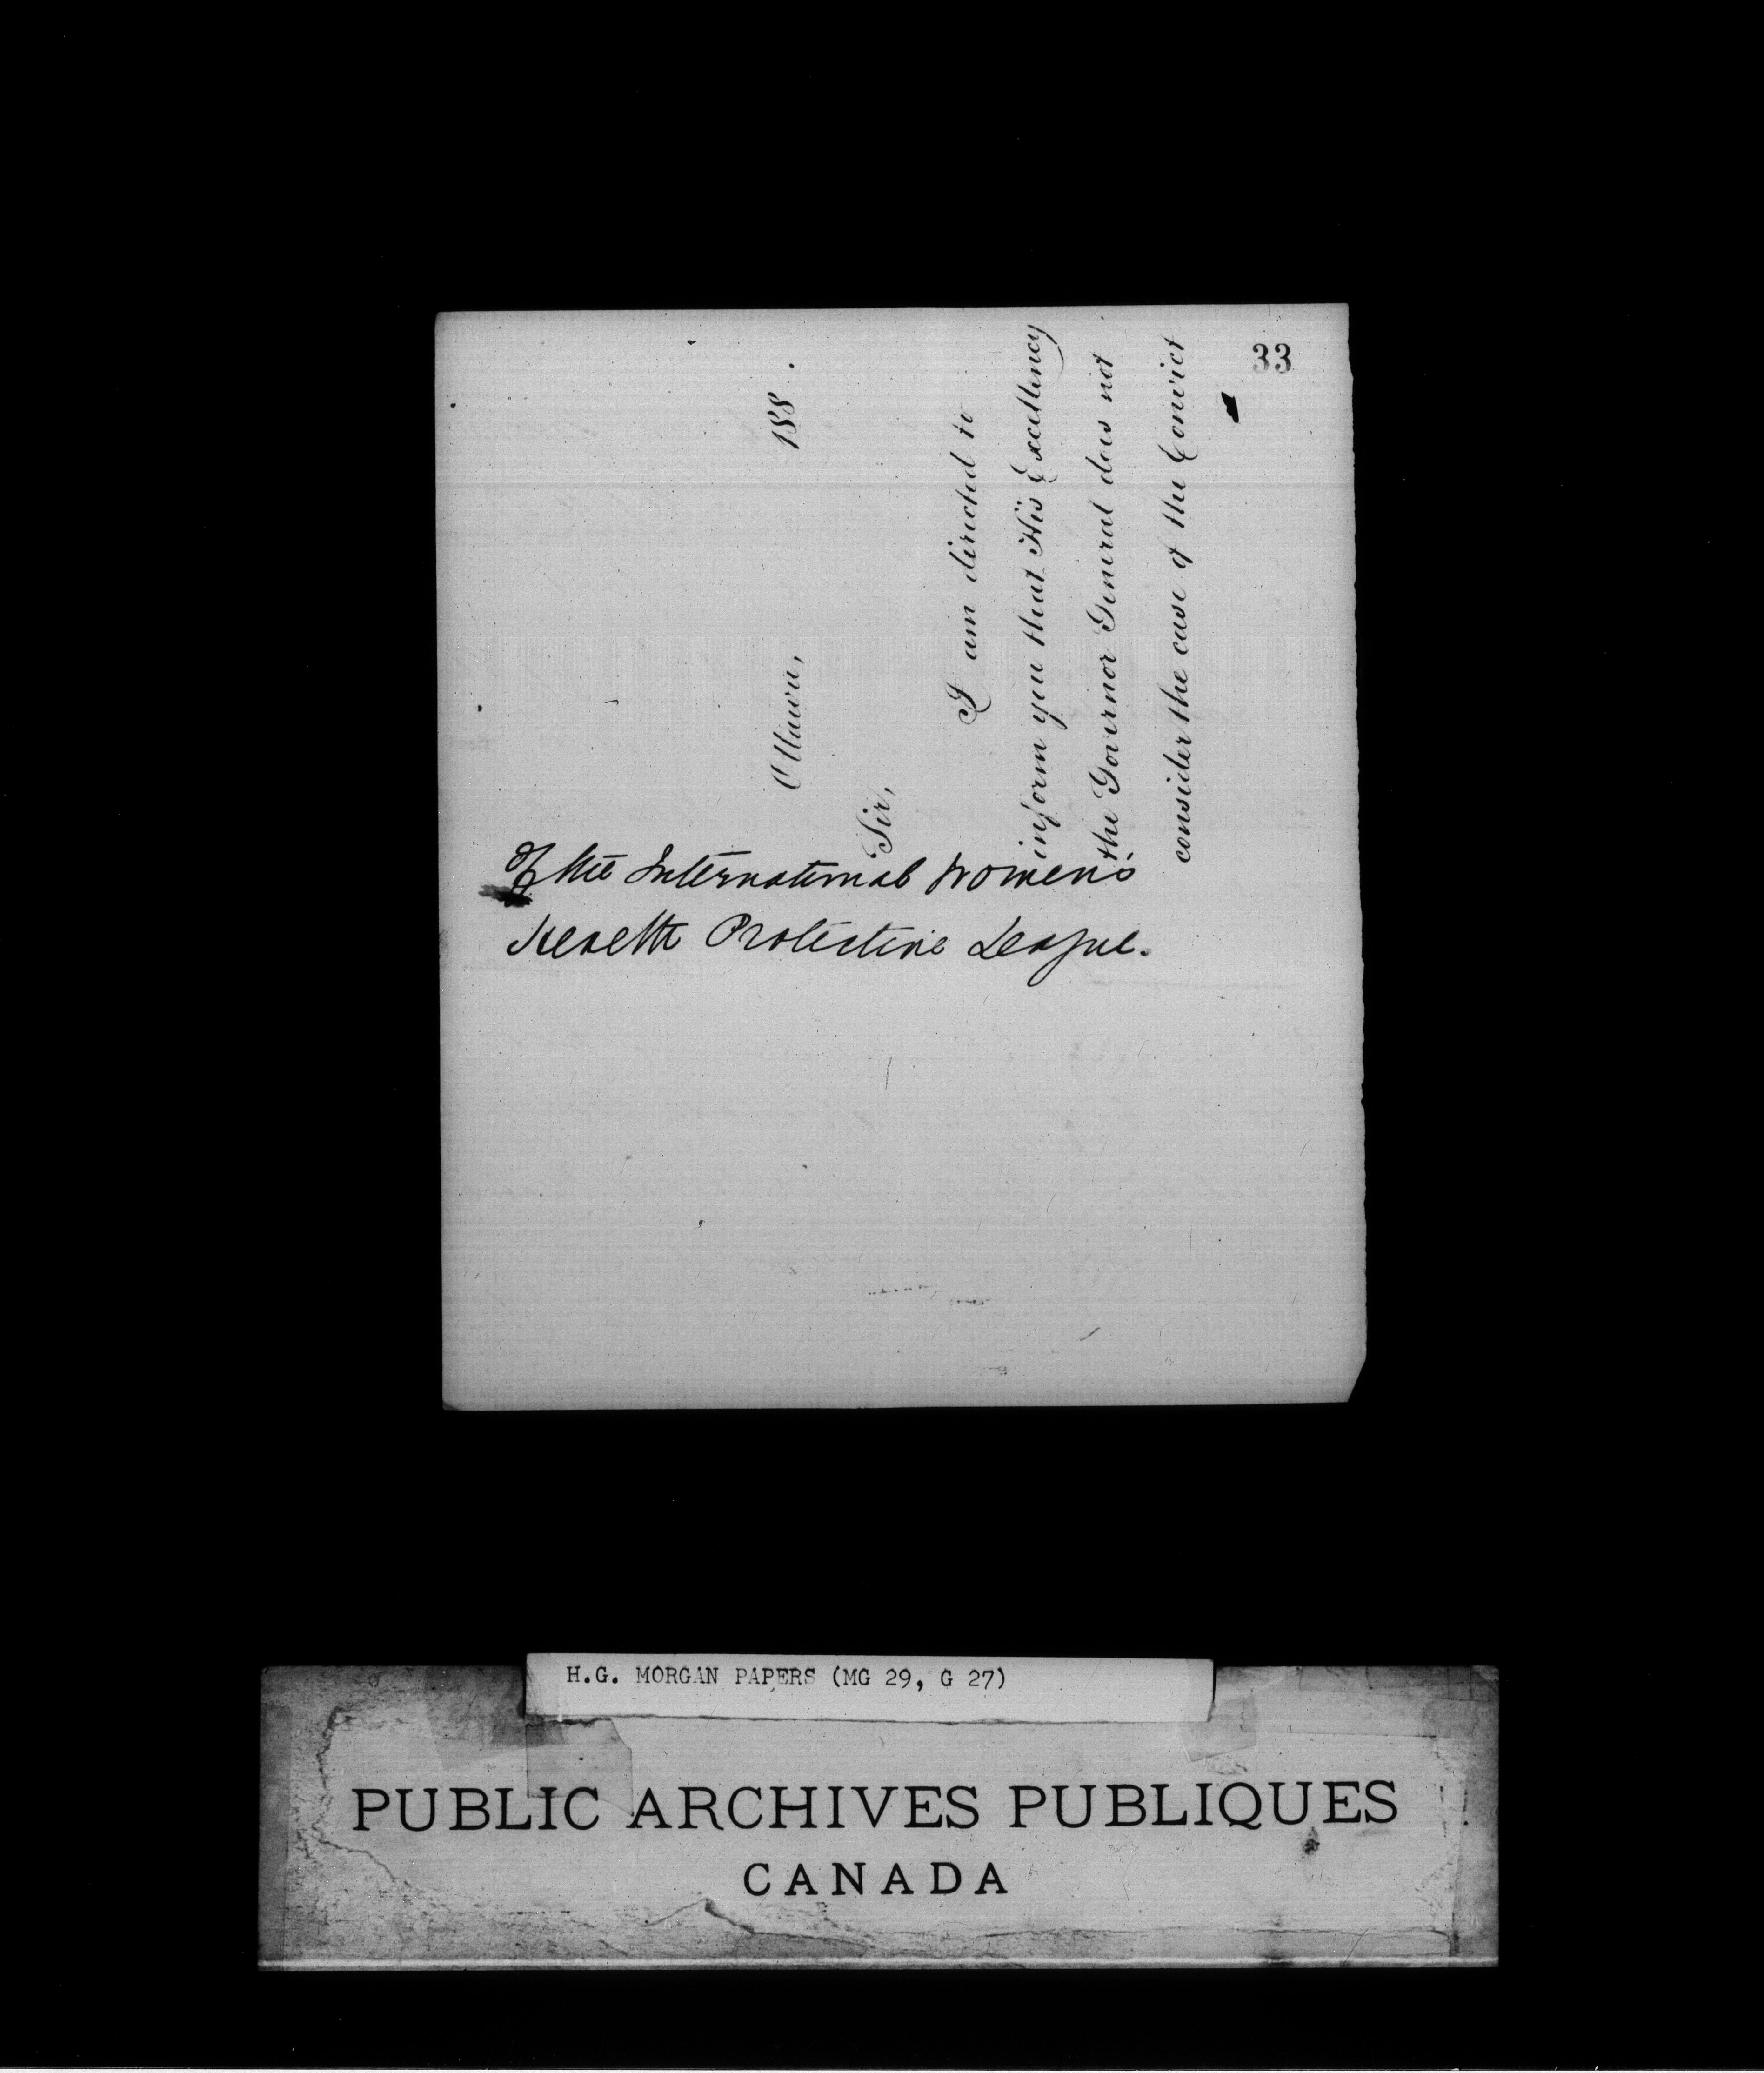 33
Ottawa, 188 .
Sir,
I am directed to
inform you that His Excellency
the Governor General does not
consider the case of the Convict
Of the International Women's
Health Protective League.
H.G. MORGAN PAPERS (MG 29, G 27)
PUBLIC ARCHIVES PUBLIQUES
CANADA